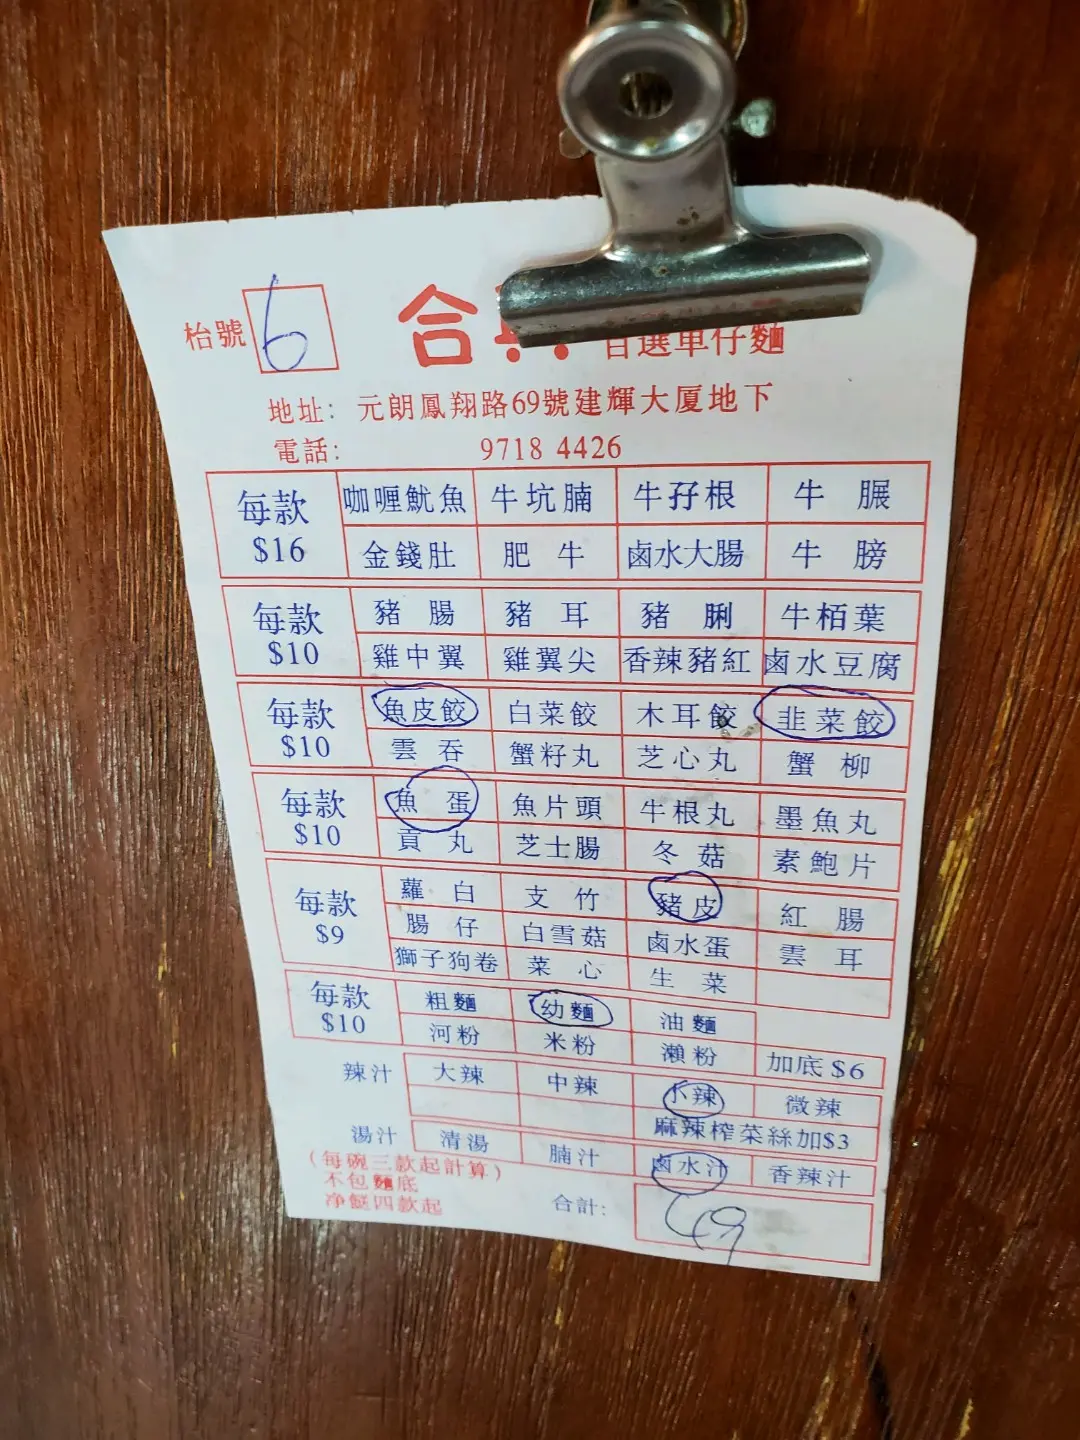 枱號 6 合 自選車仔麵
地址: 元朗鳳翔路69號建輝大廈地下
電話: 9718 4426
每款 $16 咖喱魷魚 牛坑腩 牛孖根 牛 𦟌
金錢肚 肥 牛 鹵水大腸 牛 膀
每款 $10 豬 腸 豬 耳 豬 脷 牛栢葉
雞中翼 雞翼尖 香辣豬紅 鹵水豆腐
每款 $10 魚皮餃 白菜餃 木耳餃 韭菜餃
雲 吞 蟹籽丸 芝心丸 蟹 柳
每款 $10 魚 蛋 魚片頭 牛根丸 墨魚丸
貢 丸 芝士腸 冬 菇 素鮑片
每款 $9 蘿 白 支 竹 豬 皮 紅 腸
腸 仔 白雪菇 鹵水蛋 雲 耳
獅子狗卷 菜 心 生 菜
每款 $10 粗麵 幼麵 油麵
河粉 米粉 瀨粉 加底 $6
辣汁 大辣 中辣 小辣 微辣
麻辣榨菜絲加$3
湯汁 清湯 腩汁 鹵水汁 香辣汁
(每碗三款起計算)
不包麵底
净餸四款起 合計: 69